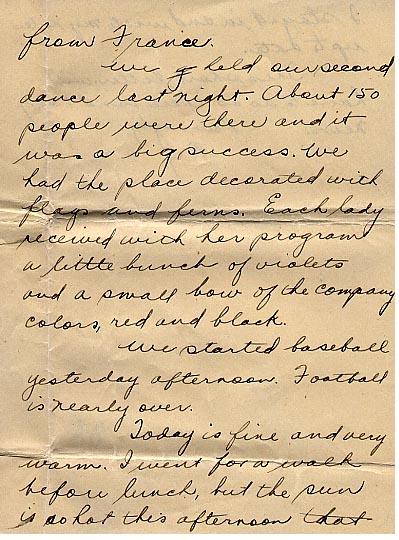 from France.
We held our second
dance last night. About 150
people were there and it
was a big success. We
had the place decorated with
flags and ferns. Each lady
received with her program
a little bunch of violets
and a small bow of the company
colors, red and black.
We started baseball
yesterday afternoon. Football
is nearly over.
Today is fine and very
warm. I went for a walk
before lunch, but the sun
is so hot this afternoon that